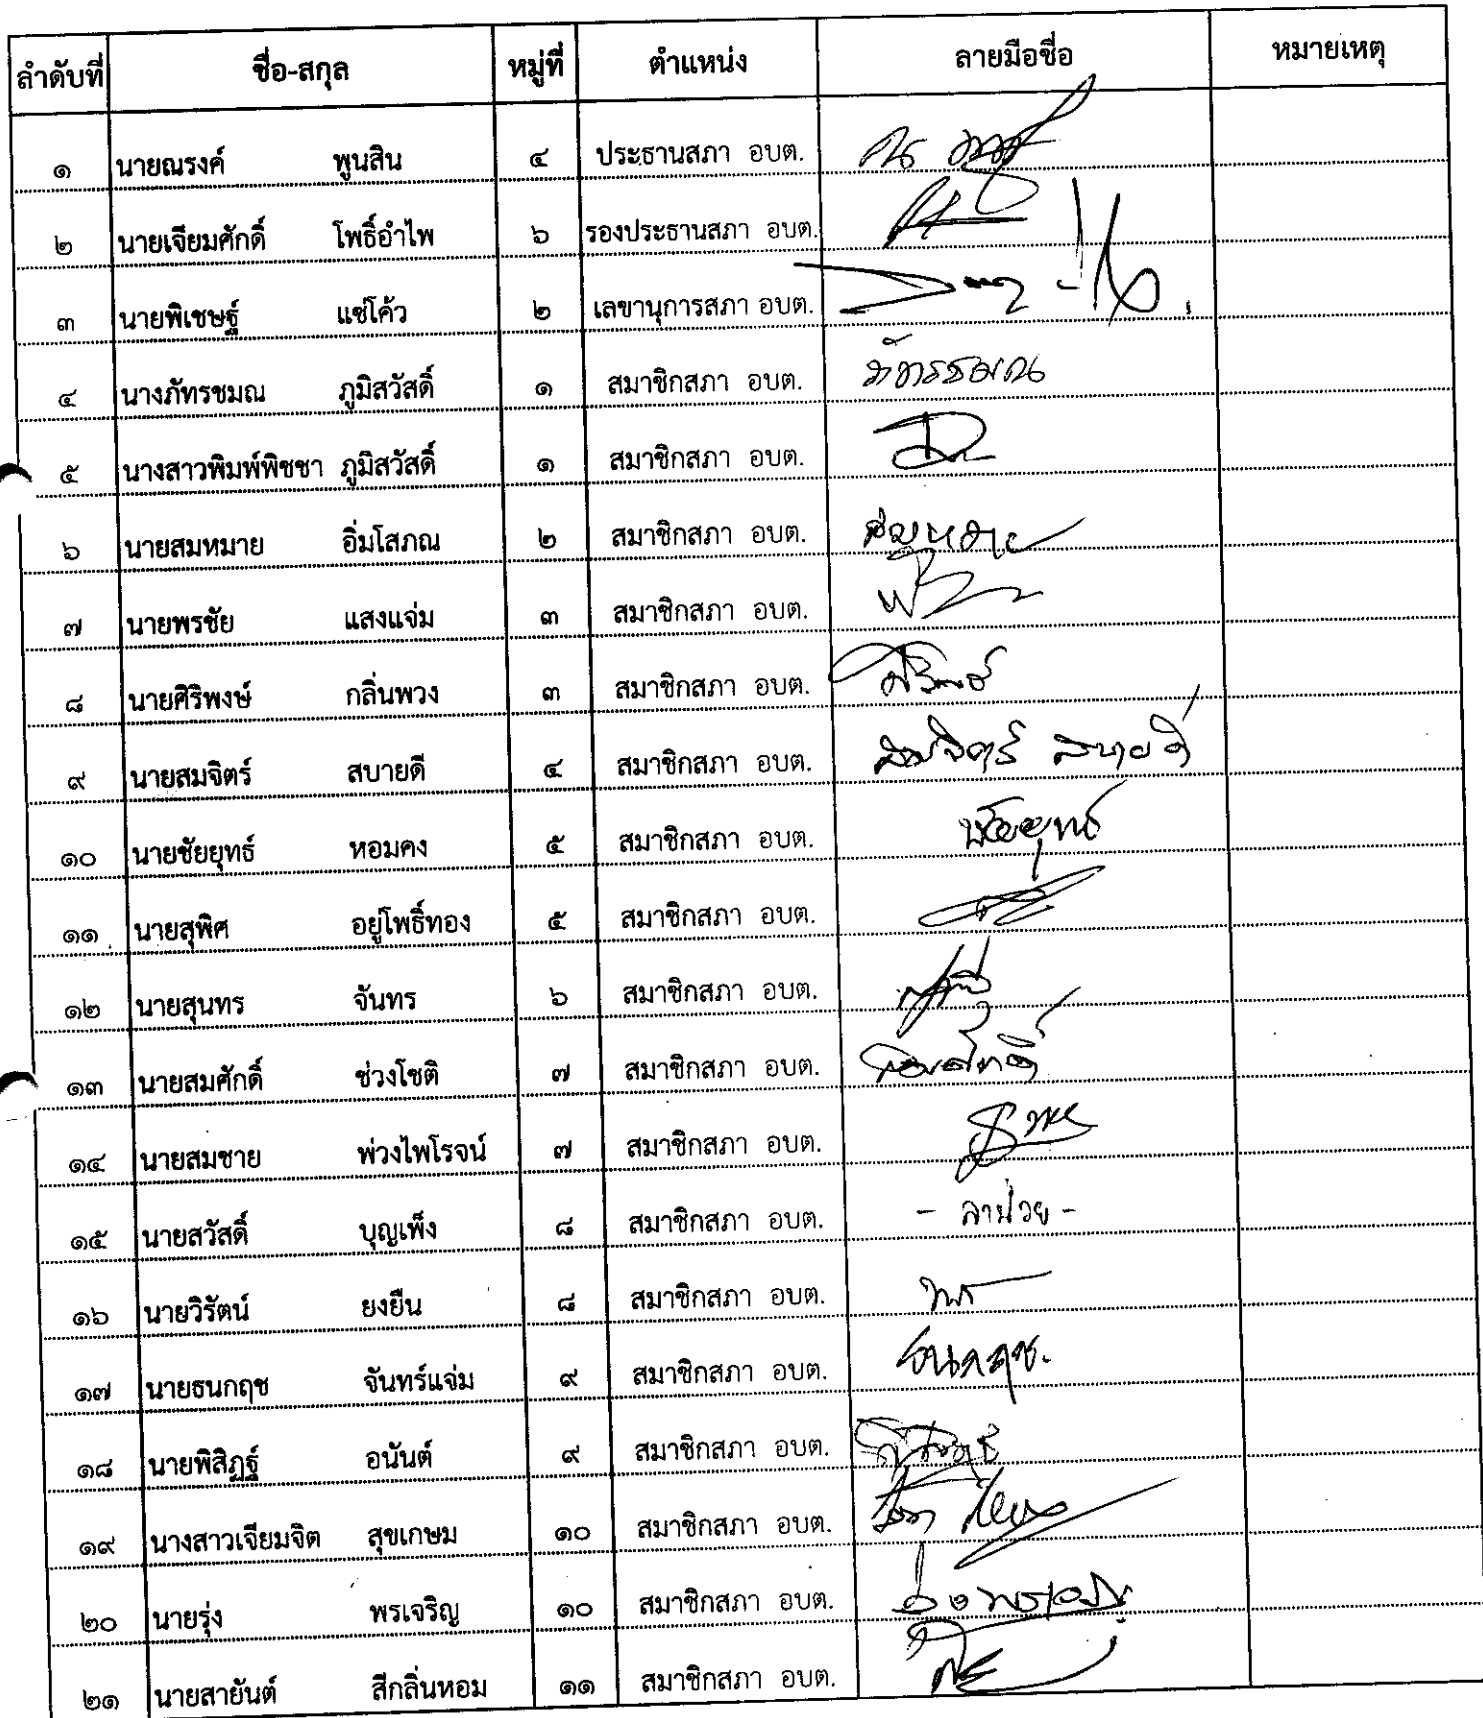 ลำดับที่ ชื่อ-สกุล หมู่ที่ ตำแหน่ง ลายมือชื่อ หมายเหตุ
๑ นายณรงค์ พูนสิน ๔ ประธานสภา อบต.
๒ นายเจียมศักดิ์ โพธิ์อำไพ ๖ รองประธานสภา อบต.
๓ นายพิเชษฐ์ แซ่โค้ว ๒ เลขานุการสภา อบต.
๔ นางภัทรชมณ ภูมิสวัสดิ์ ๑ สมาชิกสภา อบต. ภัทรชมณ
๕ นางสาวพิมพ์พิชชา ภูมิสวัสดิ์ ๑ สมาชิกสภา อบต.
๖ นายสมหมาย อิ่มโสภณ ๒ สมาชิกสภา อบต. สมหมาย
๗ นายพรชัย แสงแจ่ม ๓ สมาชิกสภา อบต.
๘ นายศิริพงษ์ กลิ่นพวง ๓ สมาชิกสภา อบต.
๙ นายสมจิตร์ สบายดี ๔ สมาชิกสภา อบต. สมจิตร์ สบายดี
๑๐ นายชัยยุทธ์ หอมคง ๕ สมาชิกสภา อบต. ชัยยุทธ์
๑๑ นายสุพิศ อยู่โพธิ์ทอง ๕ สมาชิกสภา อบต.
๑๒ นายสุนทร จันทร ๖ สมาชิกสภา อบต.
๑๓ นายสมศักดิ์ ช่วงโชติ ๗ สมาชิกสภา อบต. สมศักดิ์
๑๔ นายสมชาย พ่วงไพโรจน์ ๗ สมาชิกสภา อบต.
๑๕ นายสวัสดิ์ บุญเพ็ง ๘ สมาชิกสภา อบต. - ลาป่วย -
๑๖ นายวิรัตน์ ยงยืน ๘ สมาชิกสภา อบต.
๑๗ นายธนกฤช จันทร์แจ่ม ๙ สมาชิกสภา อบต. ธนกฤช.
๑๘ นายพิสิฏฐ์ อนันต์ ๙ สมาชิกสภา อบต.
๑๙ นางสาวเจียมจิต สุขเกษม ๑๐ สมาชิกสภา อบต.
๒๐ นายรุ่ง พรเจริญ ๑๐ สมาชิกสภา อบต.
๒๑ นายสายันต์ สีกลิ่นหอม ๑๑ สมาชิกสภา อบต.